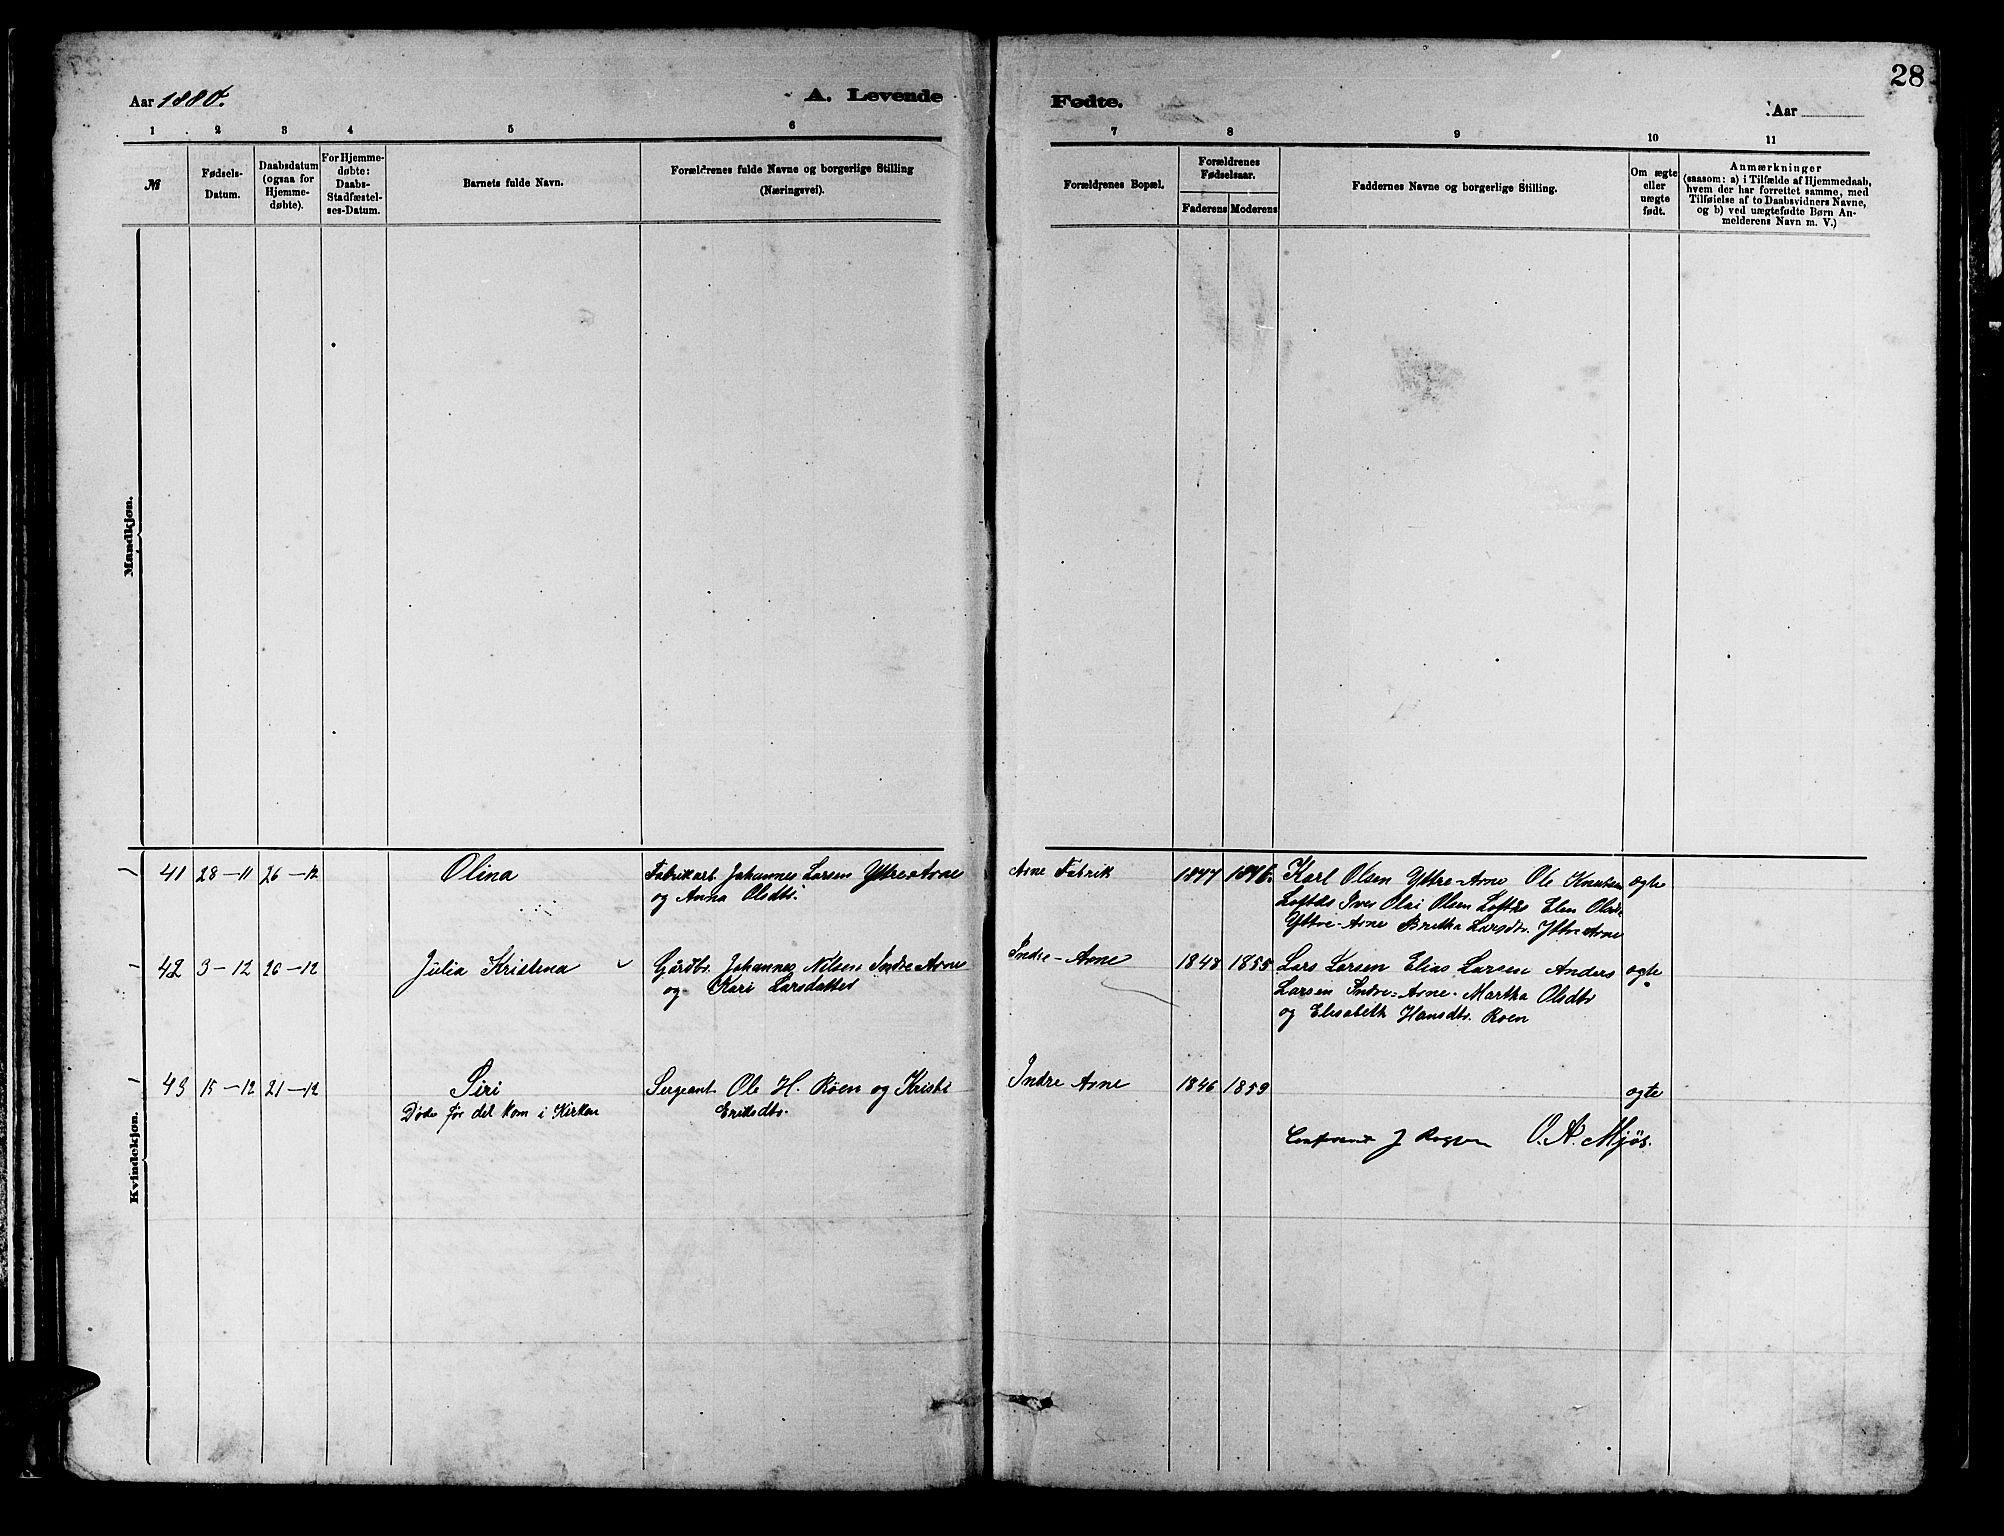 28
Aar 1880.
A. Levende
Fødte.
Aar
1 2 3 4 5 6
7 8 9 10 11
№
Fødsels-
Datum.
Daabsdatum
(ogsaa for
Hjemme-
døbte).
For Hjemme-
døbte:
Daabs-
Stadfæstel-
ses-Datum.
Barnets fulde Navn.
Forældrenes fulde Navne og borgerlige Stilling
(Næringsvei).
Forældrenes Bopæl.
Forældrenes
Fødselsaar.
Faderens Moderens
Faddernes Navne og borgerlige Stilling.
Om ægte
eller
uægte
født.
Anmærkninger
(saasom: a) i Tilfælde af Hjemmedaab,
hvem der har forrettet samme, med
Tilføielse af to Daabsvidners Navne,
og b) ved uægtefødte Børn An-
melderens Navn m. V.)
Mandkjøn.
Kvindekjøn.
41 28-11 26-12 Olina
Fabrikarb. Johannes Larsen Yttre Arne
og Anna Olsdtr.
Arne Fabrik
1847 1846.
Karl Olsen Yttre-Arne Ole Knutsen
Loftås Iver Olai Olsen Loftås Elen Olsdtr
Yttre-Arne Britha Larsdtr. Yttre Arne
ægte
42 3-12 26-12 Julia Kristina
Gårdbr. Johannes Nilsen Indre Arne
og Kari Larsdatter
Indre-Arne
1848 1855
Lars Larsen Elias Larsen Anders
Larsen Indre-Arne. Martha Olsdtr
og Elisabeth Hansdtr. Roen
ægte
43 15-12 21-12 Siri
Døde før det kom i Kirken
Sergeant Ole H. Røen og Kristi
Eriksdtr.
Indre Arne
1846 1859
ægte
O. A. Mjös.